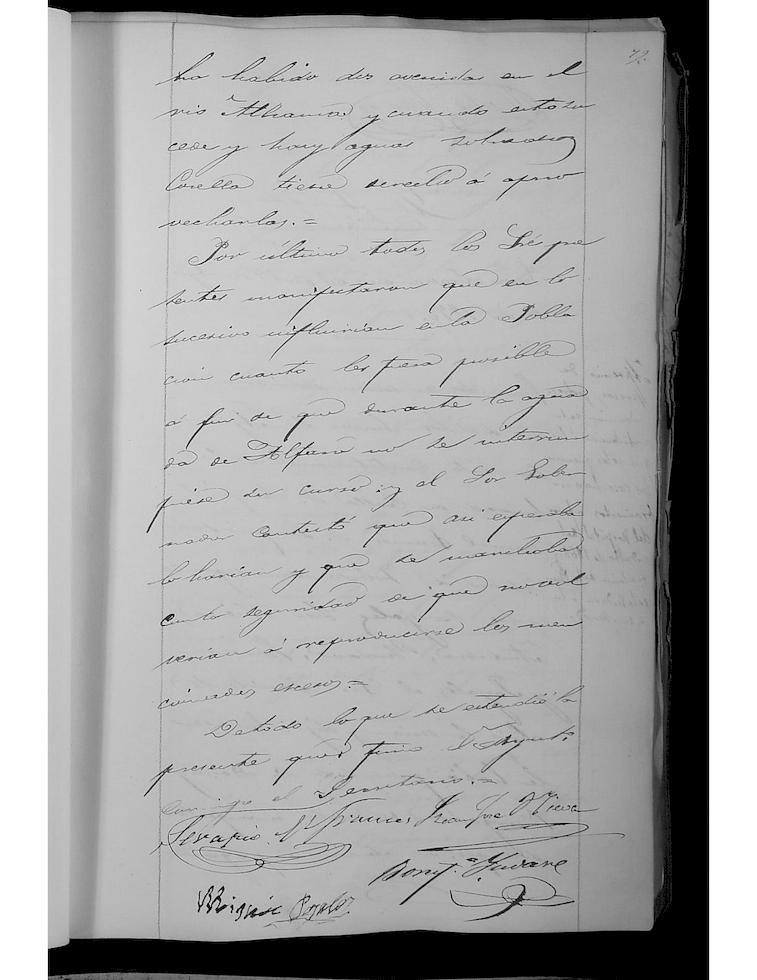 72.
ha habido dos avenidas en el
rio Alhama y cuando esto su
cede y hay aguas sobradas
Corella tiene derecho á apro
vecharlas.=
Por último todos los Sres pre
sentes manifestaron que en lo
sucesivo influirian en la Pobla
cion cuanto les fuera posible
á fin de que durante la agua
da de Alfaro no se interrum
piese su curso: y el Sor Gober
nador contestó que asi esperaba
lo harian y que se marchaba
con la seguridad de que no vol
verian á reproducirse los men
cionados escesos.=
De todo lo que se estendió la
presente que firmó S. Ayunto
con go el Secretario.=
Serapio Frances Juan José Nieva
Miguel